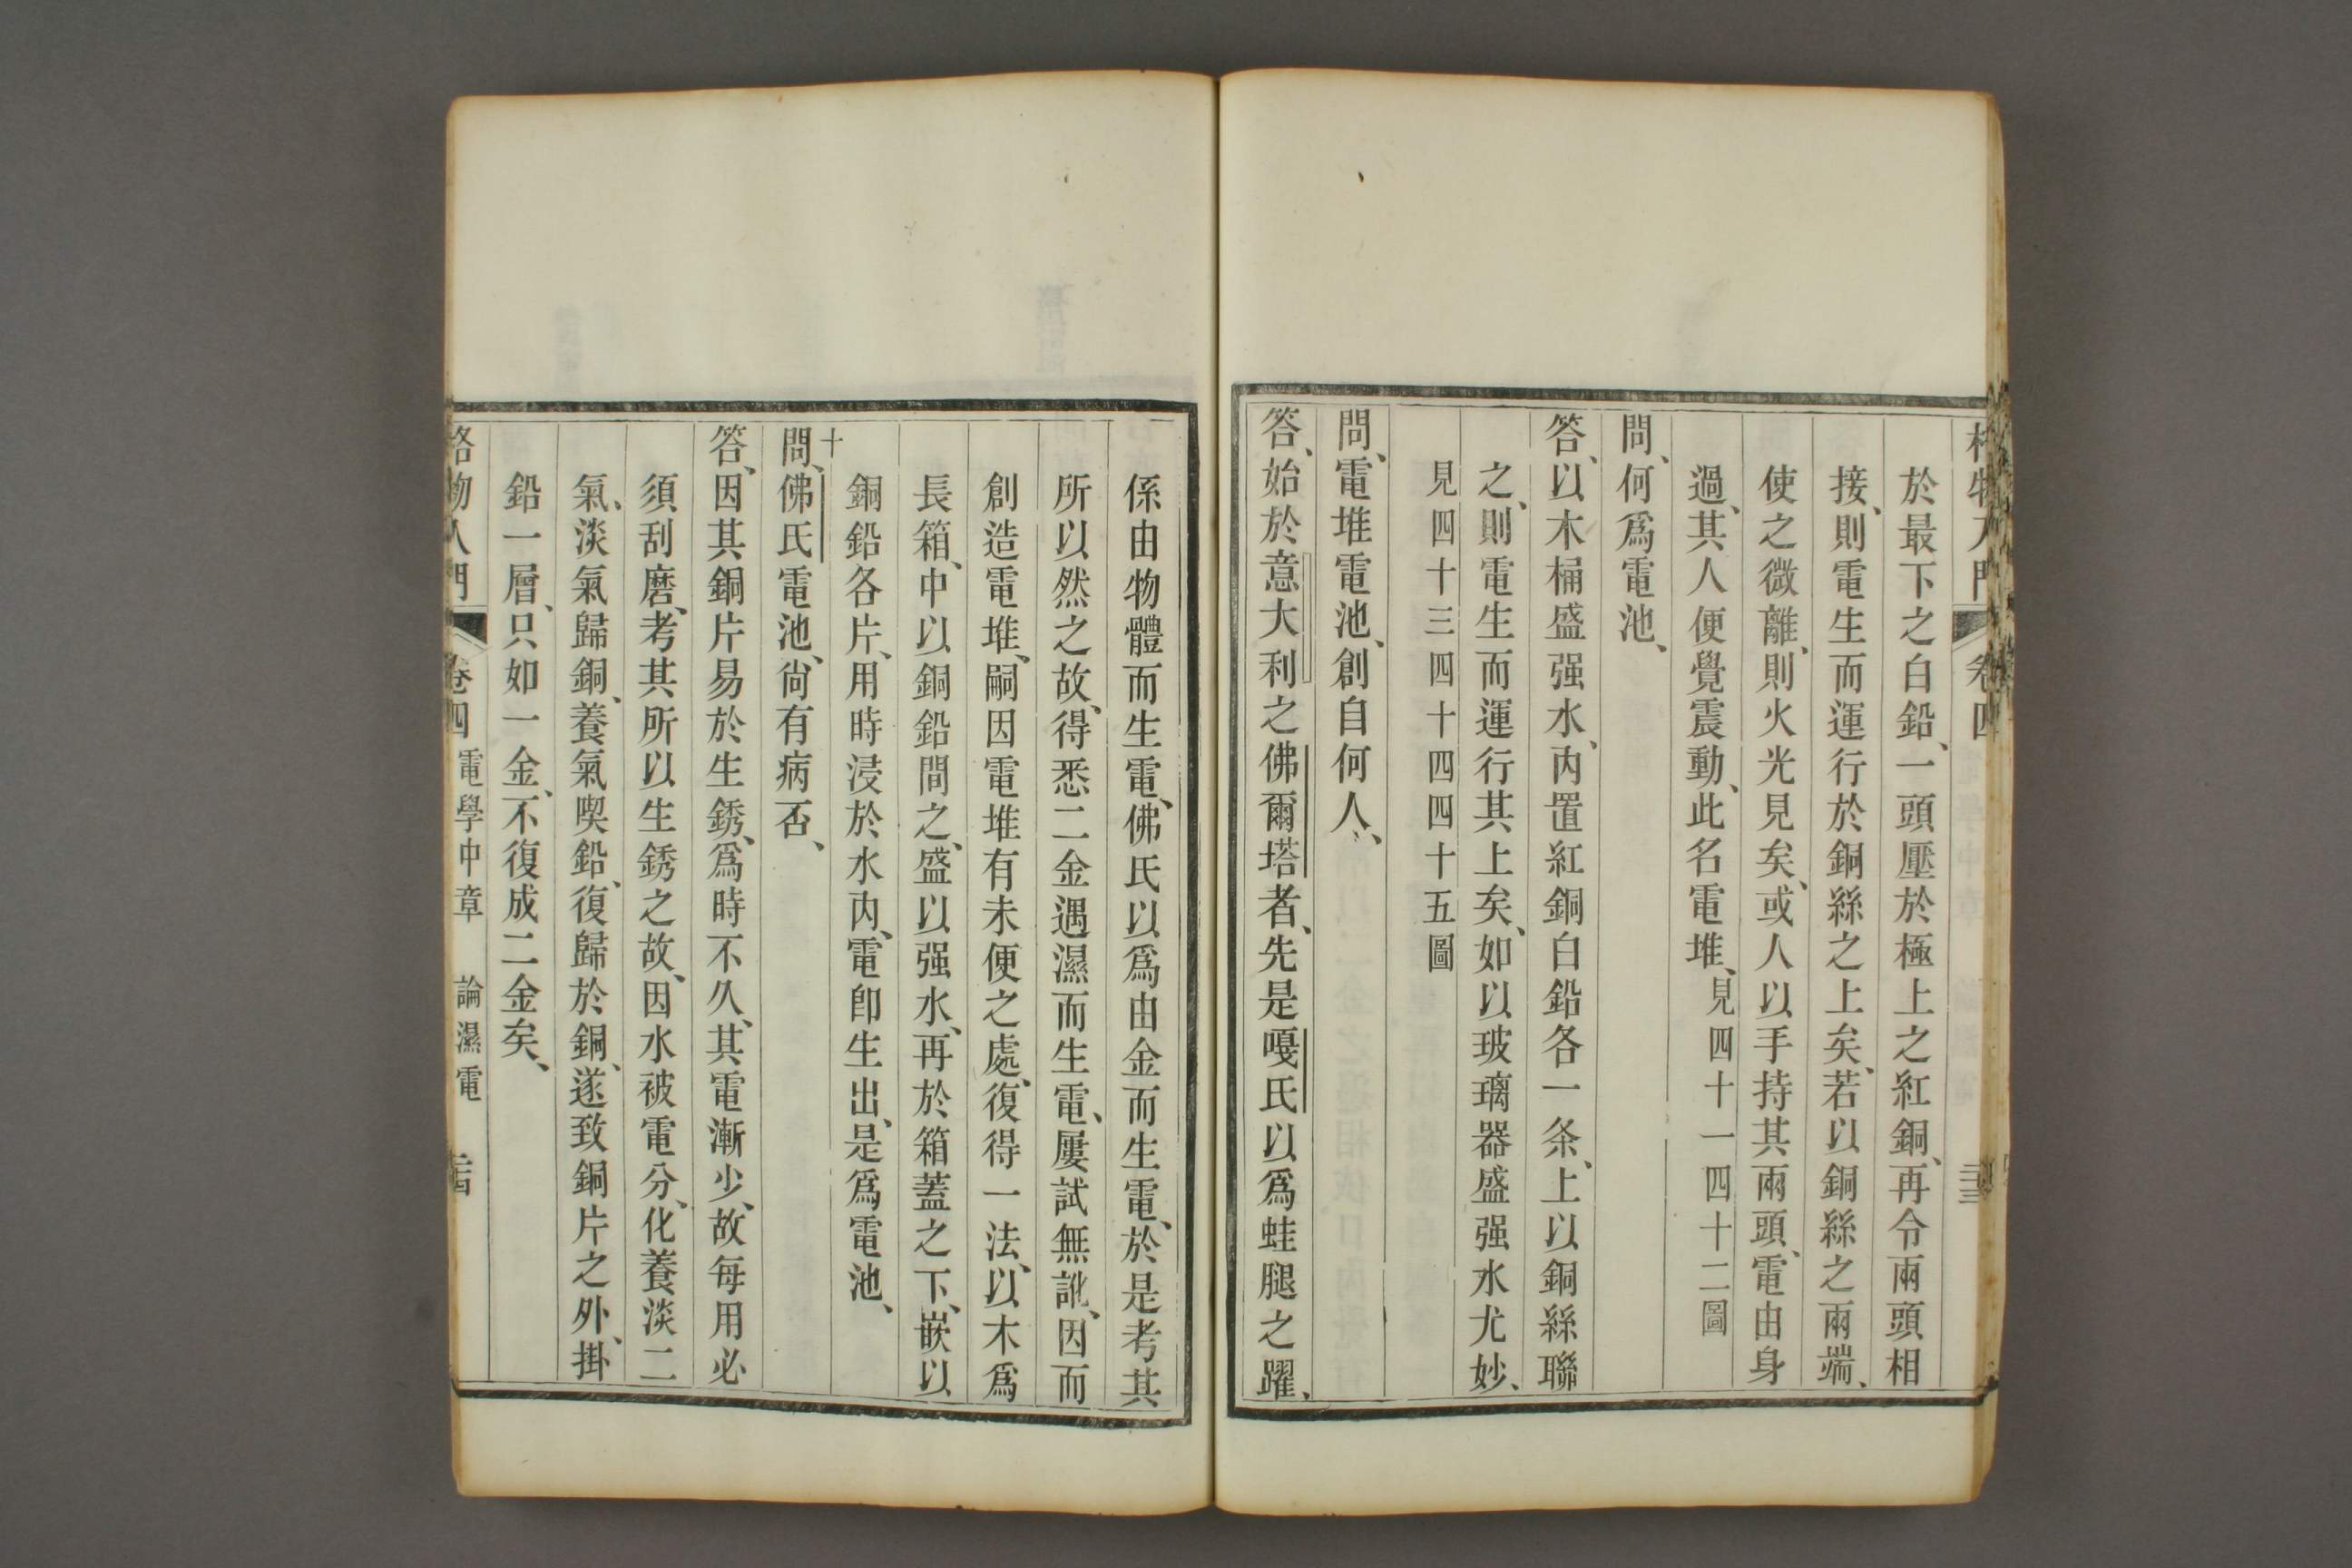 格物入門 卷四 二十三
於最下之白鉛、一頭壓於極上之紅銅、再令兩頭相
接、則電生而運行於銅絲之上矣、若以銅絲之兩端、
使之微離、則火光見矣、或人以手持其兩頭、電由身
過、其人便覺震動、此名電堆、見四十一四十二圖
問、何爲電池、
答、以木桶盛强水、內置紅銅白鉛各一条、上以銅絲聯
之、則電生而運行其上矣、如以玻璃器盛强水尤妙、
見四十三四十四四十五圖
問、電堆電池、創自何人、
答、始於意大利之佛爾塔者、先是嘎氏以爲蛙腿之躍、
係由物體而生電、佛氏以爲由金而生電、於是考其
所以然之故、得悉二金遇濕而生電、屢試無訛、因而
創造電堆、嗣因電堆有未便之處、復得一法、以木爲
長箱、中以銅鉛間之、盛以强水、再於箱蓋之下、嵌以
銅鉛各片、用時浸於水內、電卽生出、是爲電池、
十
問、佛氏電池、尙有病否、
答、因其銅片易於生銹、爲時不久、其電漸少、故每用必
須刮磨、考其所以生銹之故、因水被電分、化養淡二
氣、淡氣歸銅、養氣喫鉛、復歸於銅、遂致銅片之外、掛
鉛一層、只如一金、不復成二金矣、
格物入門 卷四 電學中章 論濕電 二十四